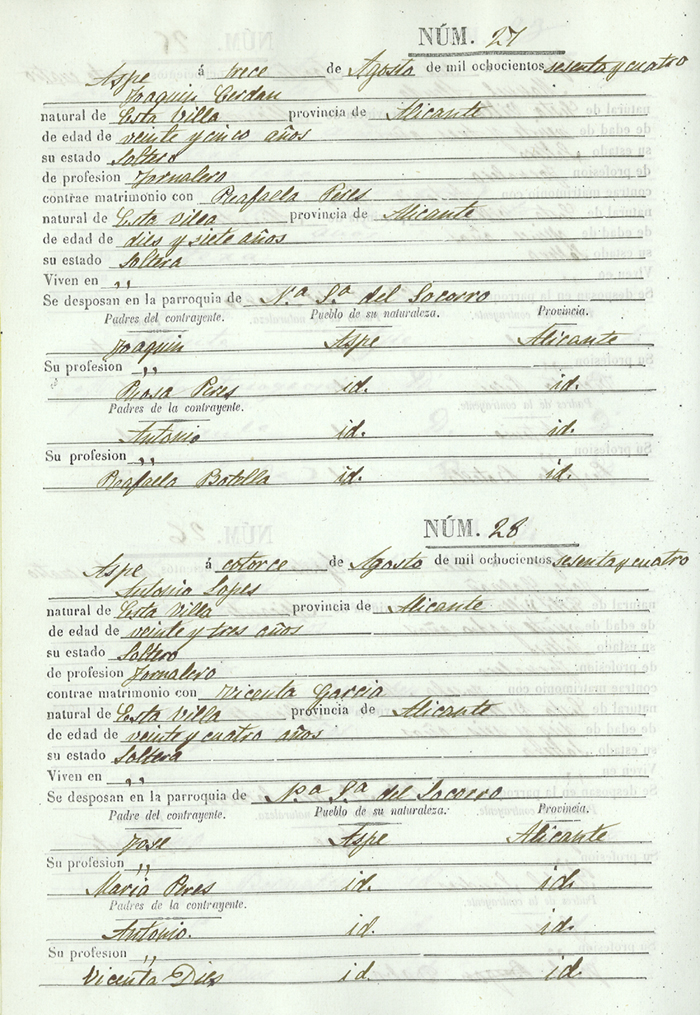 NÚM. 27
Aspe á trece de Agosto de mil ochocientos sesenta y cuatro
Joaquin Cerdan
natural de Esta Villa provincia de Alicante
de edad de veinte y cinco años
su estado Soltero
de profesion Jornalero
contrae matrimonio con Reafaela Peres
natural de Esta Villa provincia de Alicante
de edad de dies y siete años
su estado Soltera
Viven en ,,
Se desposan en la parroquia de N.ª S.ª del Socorro
Padres del contrayente. Pueblo de su naturaleza. Provincia.
Joaquin Aspe Alicante
Su profesion ,,
Rosa Peres id. id.
Padres de la contrayente.
Antonio id. id.
Su profesion ,,
Reafaela Botella id. id.
NÚM. 28
Aspe á catorce de Agosto de mil ochocientos sesenta y cuatro
Antonio Lopes
natural de Esta Villa provincia de Alicante
de edad de veinte y tres años
su estado Soltero
de profesion Jornalero
contrae matrimonio con Vicenta Garcia
natural de Esta Villa provincia de Alicante
de edad de veinte y cuatro años
su estado Soltera
Viven en ,,
Se desposan en la parroquia de N.ª S.ª del Socorro
Padre del contrayente. Pueblo de su naturaleza. Provincia.
Jose Aspe Alicante
Su profesion ,,
Maria Peres id. id.
Padres de la contrayente.
Antonio. id. id.
Su profesion ,,
Vicenta Dies id. id.